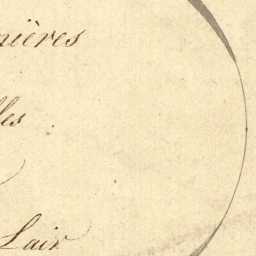 nières
lles
Lair